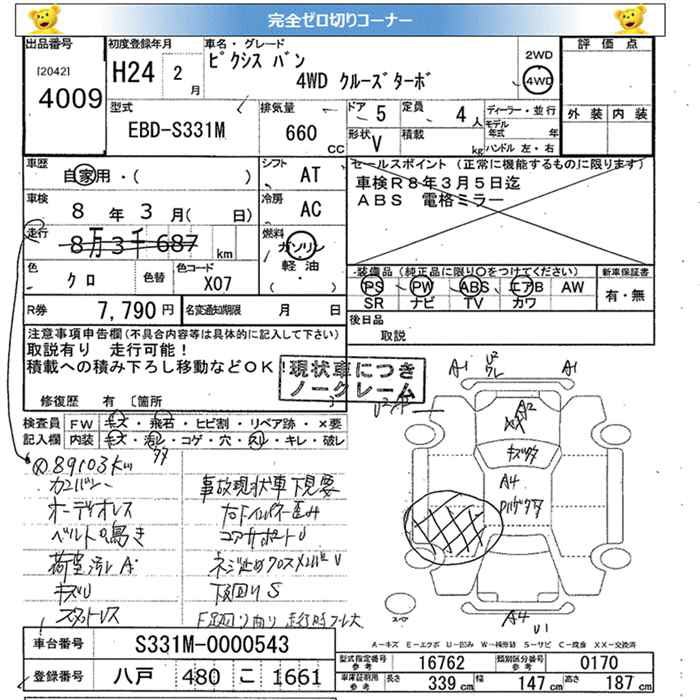 完全ゼロ切りコーナー
出品番号
[2042]
4009
初度登録年月
H24 2月
車名・グレード
ピクシス バン
4WD クルーズターボ
2WD
4WD
評価点
外装 内装
型式
EBD-S331M
排気量
660 CC
ドア 5
形状 V
定員 4人
積載 kg
ディーラー・並行
モデル年式 年
ハンドル 左・右
車歴
自家用・( )
シフト AT
車検
8年 3月( 日)
冷房 AC
セールスポイント (正常に機能するものに限ります)
車検R8年3月5日迄
ABS 電格ミラー
走行
8万3千687 km
燃料
ガソリン
軽油
( ・ )
色
クロ
色替
色コード
X07
装備品 (純正品に限り○をつけてください)
PS PW ABS エアB AW
SR ナビ TV カワ
新車保証書
有・無
R券 7,790円
名変通知期限 月 日
後日品
取説
注意事項申告欄(不具合内容等は具体的に記入して下さい)
取説有り 走行可能!
積載への積み下ろし移動などOK!
現状車につき
ノークレーム
修復歴 有 〔箇所
検査員 記入欄
FW キズ・飛石・ヒビ割・リペア跡・×要
内装 キズ・汚れ・コゲ・穴・スレ・キレ・破レ
89103km
オーディオレス
ベルト鳴き
荷室汚レ A
キズU
スタットレス
事故現状車下見要
コアサポートU
下回りS
A1
U2
A1
A2
キズワタ
A4
A4
U1
A-キズ E-エクボ U-凹み W-補修跡 S-サビ C-腐食 XX-交換済
車台番号 S331M-0000543
登録番号 八戸 480 こ 1661
型式指定番号 参考 16762
類別区分番号 参考 0170
車庫証明用 参考 長さ 339cm 幅 147cm 高さ 187cm